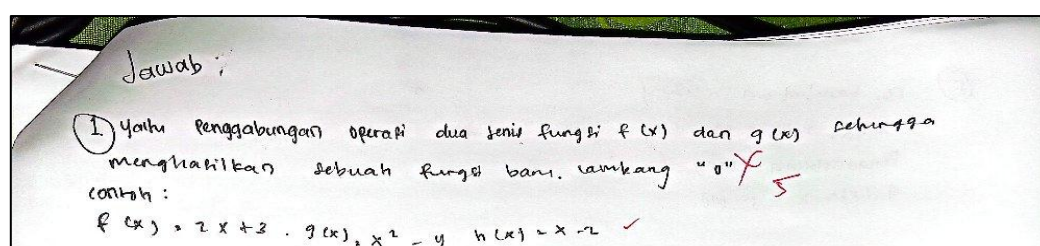 Jawab :
1) Yaitu Penggabungan operasi dua jenis fungsi f (x) dan g (x) sehingga
menghasilkan sebuah fungsi baru. lambang "o"
5
contoh :
f (x) = 2x + 3 . g(x) = x² - 4 h(x) = x - 2 ✓